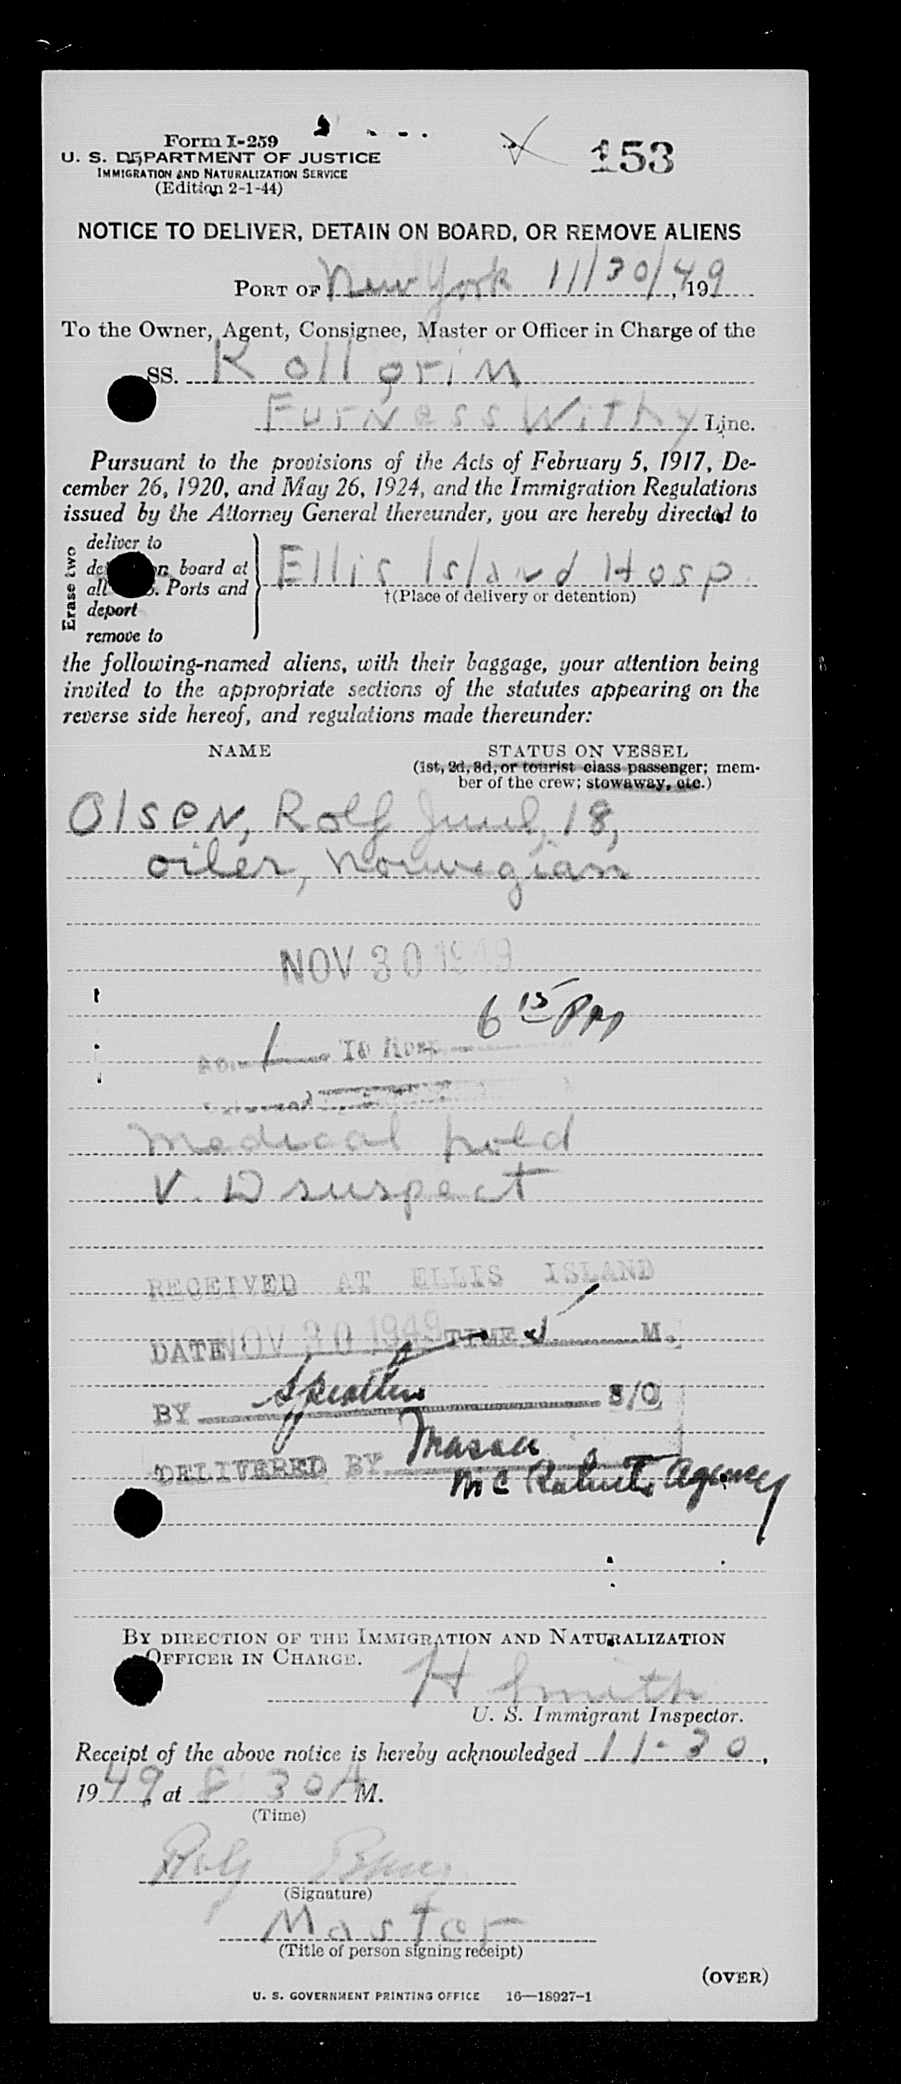 Form I-259
U. S. DEPARTMENT OF JUSTICE
IMMIGRATION AND NATURALIZATION SERVICE
(Edition 2-1-44)
153
NOTICE TO DELIVER, DETAIN ON BOARD, OR REMOVE ALIENS
PORT OF New York 11/30/49, 199
To the Owner, Agent, Consignee, Master or Officer in Charge of the
SS. Kollgrim
Furness Withy Line.
Pursuant to the provisions of the Acts of February 5, 1917, De-
cember 26, 1920, and May 26, 1924, and the Immigration Regulations
issued by the Attorney General thereunder, you are hereby directed to
Erase two
deliver to
on board at
all Ports and
deport
remove to
Ellis Island Hosp.
†(Place of delivery or detention)
the following-named aliens, with their baggage, your attention being
invited to the appropriate sections of the statutes appearing on the
reverse side hereof, and regulations made thereunder:
NAME STATUS ON VESSEL
(1st, 2d, 3d, or tourist class passenger; mem-
ber of the crew; stowaway, etc.)
Olsen, Rolf Juul, 18,
oiler, Norwegian
NOV 30 1949
6 15 PM
1 To Hosp
Medical hold
V. D suspect
RECEIVED AT ELLIS ISLAND
DATE NOV 30 1949 TIME M.
BY S/O
DELIVERED BY Massa
Mc Roberts Agency
BY DIRECTION OF THE IMMIGRATION AND NATURALIZATION
OFFICER IN CHARGE.
H Smith
U. S. Immigrant Inspector.
Receipt of the above notice is hereby acknowledged 11-30,
1949, at 8 30 A M.
(Time)
Rolf
(Signature)
Master
(Title of person signing receipt)
(OVER)
U. S. GOVERNMENT PRINTING OFFICE 16—18927-1